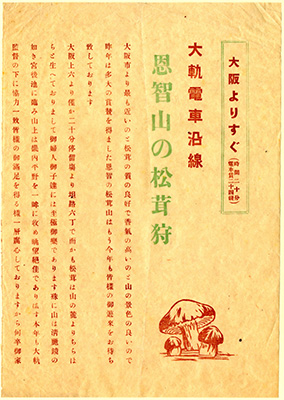 大阪よりすぐ
時間二十分
大軌電車沿線
恩智山の松茸狩
大阪市より最も近いのと松茸の質の良好で香氣の高いのと山の景色の良いので
昨年は多大の賞賛を得ました恩智の松茸山はもう今年も皆樣の御遊來をお待ち
致しております
大阪上六より僅か二十分停留場より坦路六丁で而かも松茸は山の麓よりちらほ
らと生へておりまして御婦人御子達には至極御樂であります殊に山は淸麗鏡の
如き宮後池に臨み山上は畿内平野を一眸に收め眺望絶佳であります本年も大軌
監督の下に協力一致皆樣の御滿足を得る樣一層靑心しておりますから何卒御家